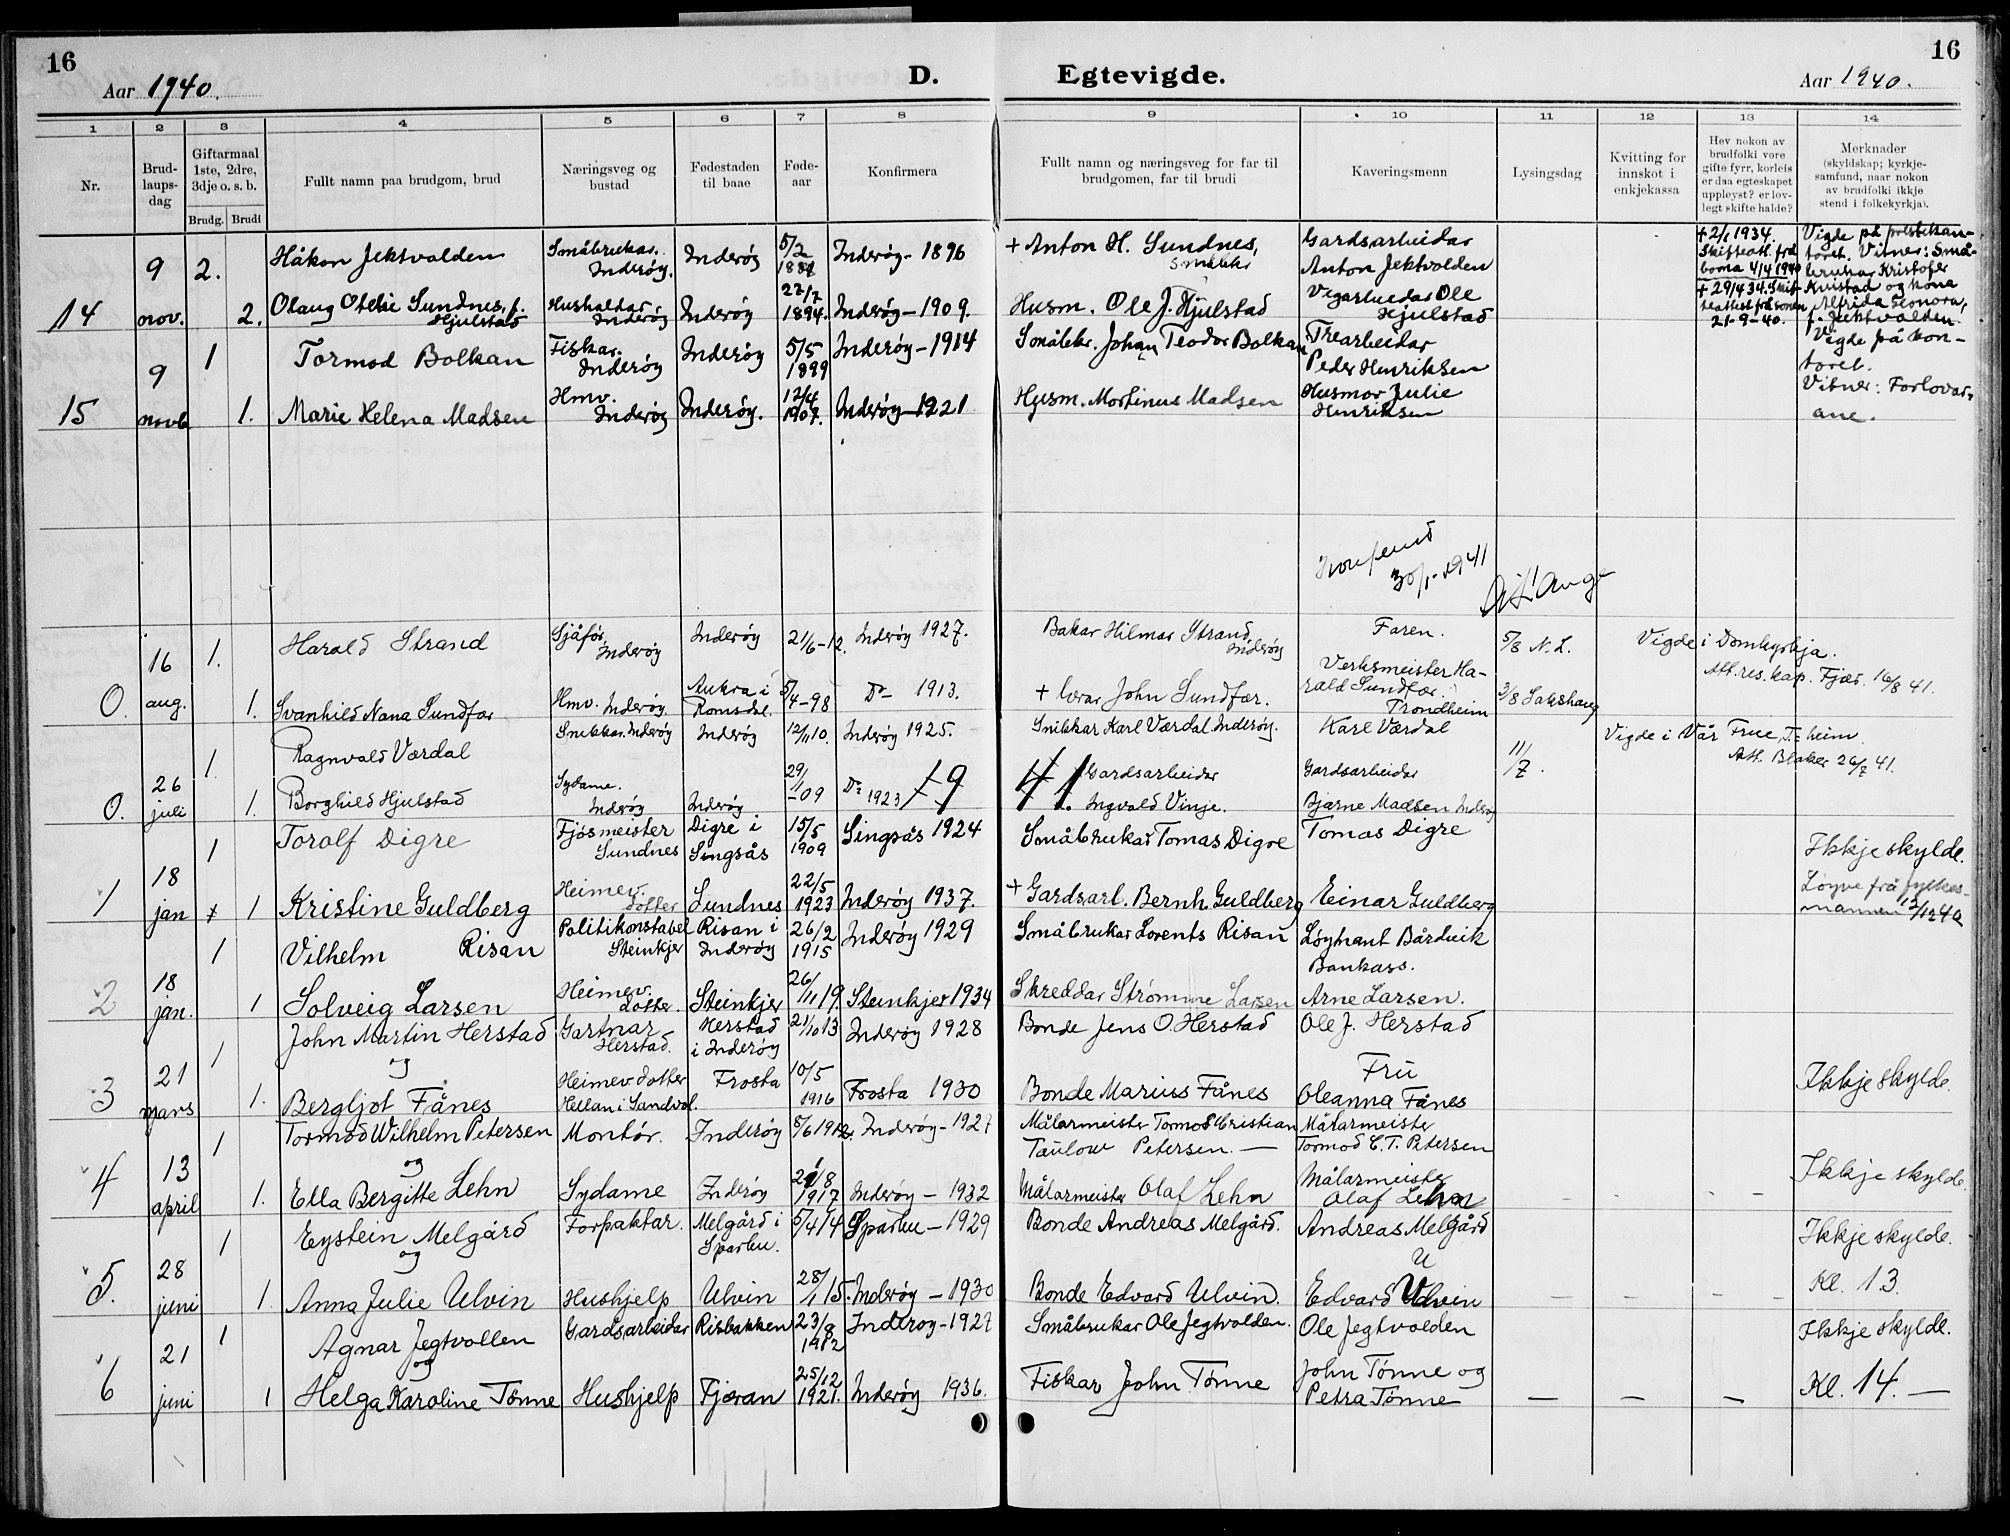 16
Aar 1940.
D. Egtevigde.
Aar 1940.
16
1 2 3 4 5 6 7 8 9 10 11 12 13 14
Nr.
Brud-
laups-
dag
Giftarmaal
1ste, 2dre,
3dje o. s. b.
Brudg. Brudi
Fullt namn paa brudgom, brud
Næringsveg og
bustad
Fødestaden
til baae
Føde-
aar
Konfirmera
Fullt namn og næringsveg for far til
brudgomen, far til brudi
Kaveringsmenn
Lysingsdag
Kvitting for
innskot i
enkjekassa
Hev nokon av
brudfolki vore
gifte fyrr, korleis
er daa egteskapet
uppløyst? er lov-
legt skifte halde?
Merknader
(skyldskap; kyrkje-
samfund, naar nokon
av brudfolki ikkje
stend i folkekyrkja).
14
9
nov.
2.
Håkon Jektvolden
Småbrukar.
Inderøy.
Inderøy
5/2
Inderøy - 1896
+ Anton H. Sundnes,
Gardsarbeidar
Anton Jektvolden
+ 2/1 1934
4/4 1940
Vigde på prestekon-
toret. Vitner: Små-
brukar Kristofer
2.
Olaug Otelie Sundnes, f.
Hjulstad
Hushaldar
Inderøy
Inderøy
27/7
1894.
Inderøy - 1909.
Husm. Ole J. Hjulstad
Vegarbeidar Ole
Hjulstad
+ 29/4 34.
21-9-40.
Kvistad og kona
Alfrida Leonora,
f. Jektvolden.
15
9
novb
1
Tormod Bolkan
Fiskar.
Inderøy
Inderøy
5/5
1899
Inderøy - 1914
Småbkr. Johan Teodor Bolkan
Trearbeidar
Peder Henriksen
Vigde på kon-
toret.
1.
Marie Helena Madsen
Hmv.
Inderøy
Inderøy.
12/4
1907.
Inderøy - 1921
Husm. Mortinus Madsen
Husmor Julie
Henriksen
Vitner: Forlovar-
ane.
30/1-1941
0.
16
aug.
1.
Harald Strand
Sjåfør
Inderøy
Inderøy
21/6-12.
Inderøy 1927.
Bakar Hilmar Strand
Inderøy
Faren.
5/8 N. L.
Vigde i Domkyrkja.
Att. res. kap. Fjær. 16/8 41.
1.
Svanhild Nana Sundfær
Hmv. Inderøy
Aukra i
Romsdal.
5/4-98
Do 1913.
+ lærar John Sundfær.
Verksmeister Ha-
rald Sundfær.
Trondheim
3/8 Sakshaug
0.
26
juli
1.
Ragnvald Værdal
Snikkar. Inderøy
Inderøy
12/11 10.
Inderøy 1925.
Snikkar Karl Værdal. Inderøy.
Karl Værdal
11/7.
Vigde i Vår Frue, T.heim.
Att. Blaker 26/7 41.
1.
Borghild Hjulstad
Sydame.
Inderøy
Inderøy
29/1-09
Do 1923
Gardsarbeidar
Ingvald Vinje.
Gardsarbeidar
Bjarne Madsen Inderøy
19 41.
1
18
jan
1
Toralf Digre
Fjøsmeister
Sundnes
Digre i
Singsås
15/5
1909
Singsås 1924
Småbrukar Tomas Digre
Tomas Digre
Ikkje skylde.
1
Kristine Guldberg
Heimev.
dotter
Sundnes
22/5
1923
Inderøy 1937.
+ Gardsarb. Bernh. Guldberg
Einar Guldberg
Løyve frå fylkes-
mannen 12/12 40
2
18
jan.
1
Vilhelm Risan
Politikonstabel
Steinkjer
Risan i
Inderøy
26/2
1915
Inderøy 1929
Småbrukar Lorents Risan
Løytnant Bårdvik
Bankass.
1
Solveig Larsen
Heimev.
dotter.
Steinkjer
26/11 19.
Steinkjer 1934
Skreddar Strømme Larsen
Arne Larsen.
3
21
mars
1
John Martin Herstad
og
Gartnar
Herstad.
Herstad
i Inderøy
21/10 13
Inderøy 1928
Bonde Jens O. Herstad
Ole J. Herstad
1.
Bergljot Fånes
Heimev. dotter
Hellan i Sandvol.
Frosta
10/5
1916
Frosta 1930
Bonde Marius Fånes
Fru
Oleanna Fånes
Ikkje skylde.
4
13
april
1
Tormod Wilhelm Petersen
og
Montør.
Inderøy
8/6 1912.
Inderøy - 1927
Målarmeister Tormod Christian
Taulow Petersen. —
Målarmeister
Tormod C. T. Petersen
1.
Ella Bergitte Lehn
Sydame
Inderøy
21/8
1917
Inderøy - 1932
Målarmeister Olaf Lehn
Målarmeister
Olaf Lehn
Ikkje skylde.
5.
28
juni
1
Eystein Melgård
og
Forpaktar.
Melgård i
Sparbu.
5/4 14
Sparbu - 1929
Bonde Andreas Melgård.
Andreas Melgård
Ikkje skylde.
1.
Anna Julie Ulvin
Hushjelp
Ulvin
28/1 15.
Inderøy - 1930
Bonde Edvard Ulvin.
Edvard Ulvin
Kl. 13.
6
21
juni
1
Agnar Jegtvollen
og
Gardsarbeidar
Risbakken
23/9
1912
Inderøy - 1927
Småbrukar Ole Jegtvolden.
Ole Jegtvolden
Ikkje skylde.
1
Helga Karoline Tønne
Hushjelp
Fjøran
25/12
1921.
Inderøy 1936.
Fiskar John Tønne
John Tønne og
Petra Tønne
Kl. 14. —